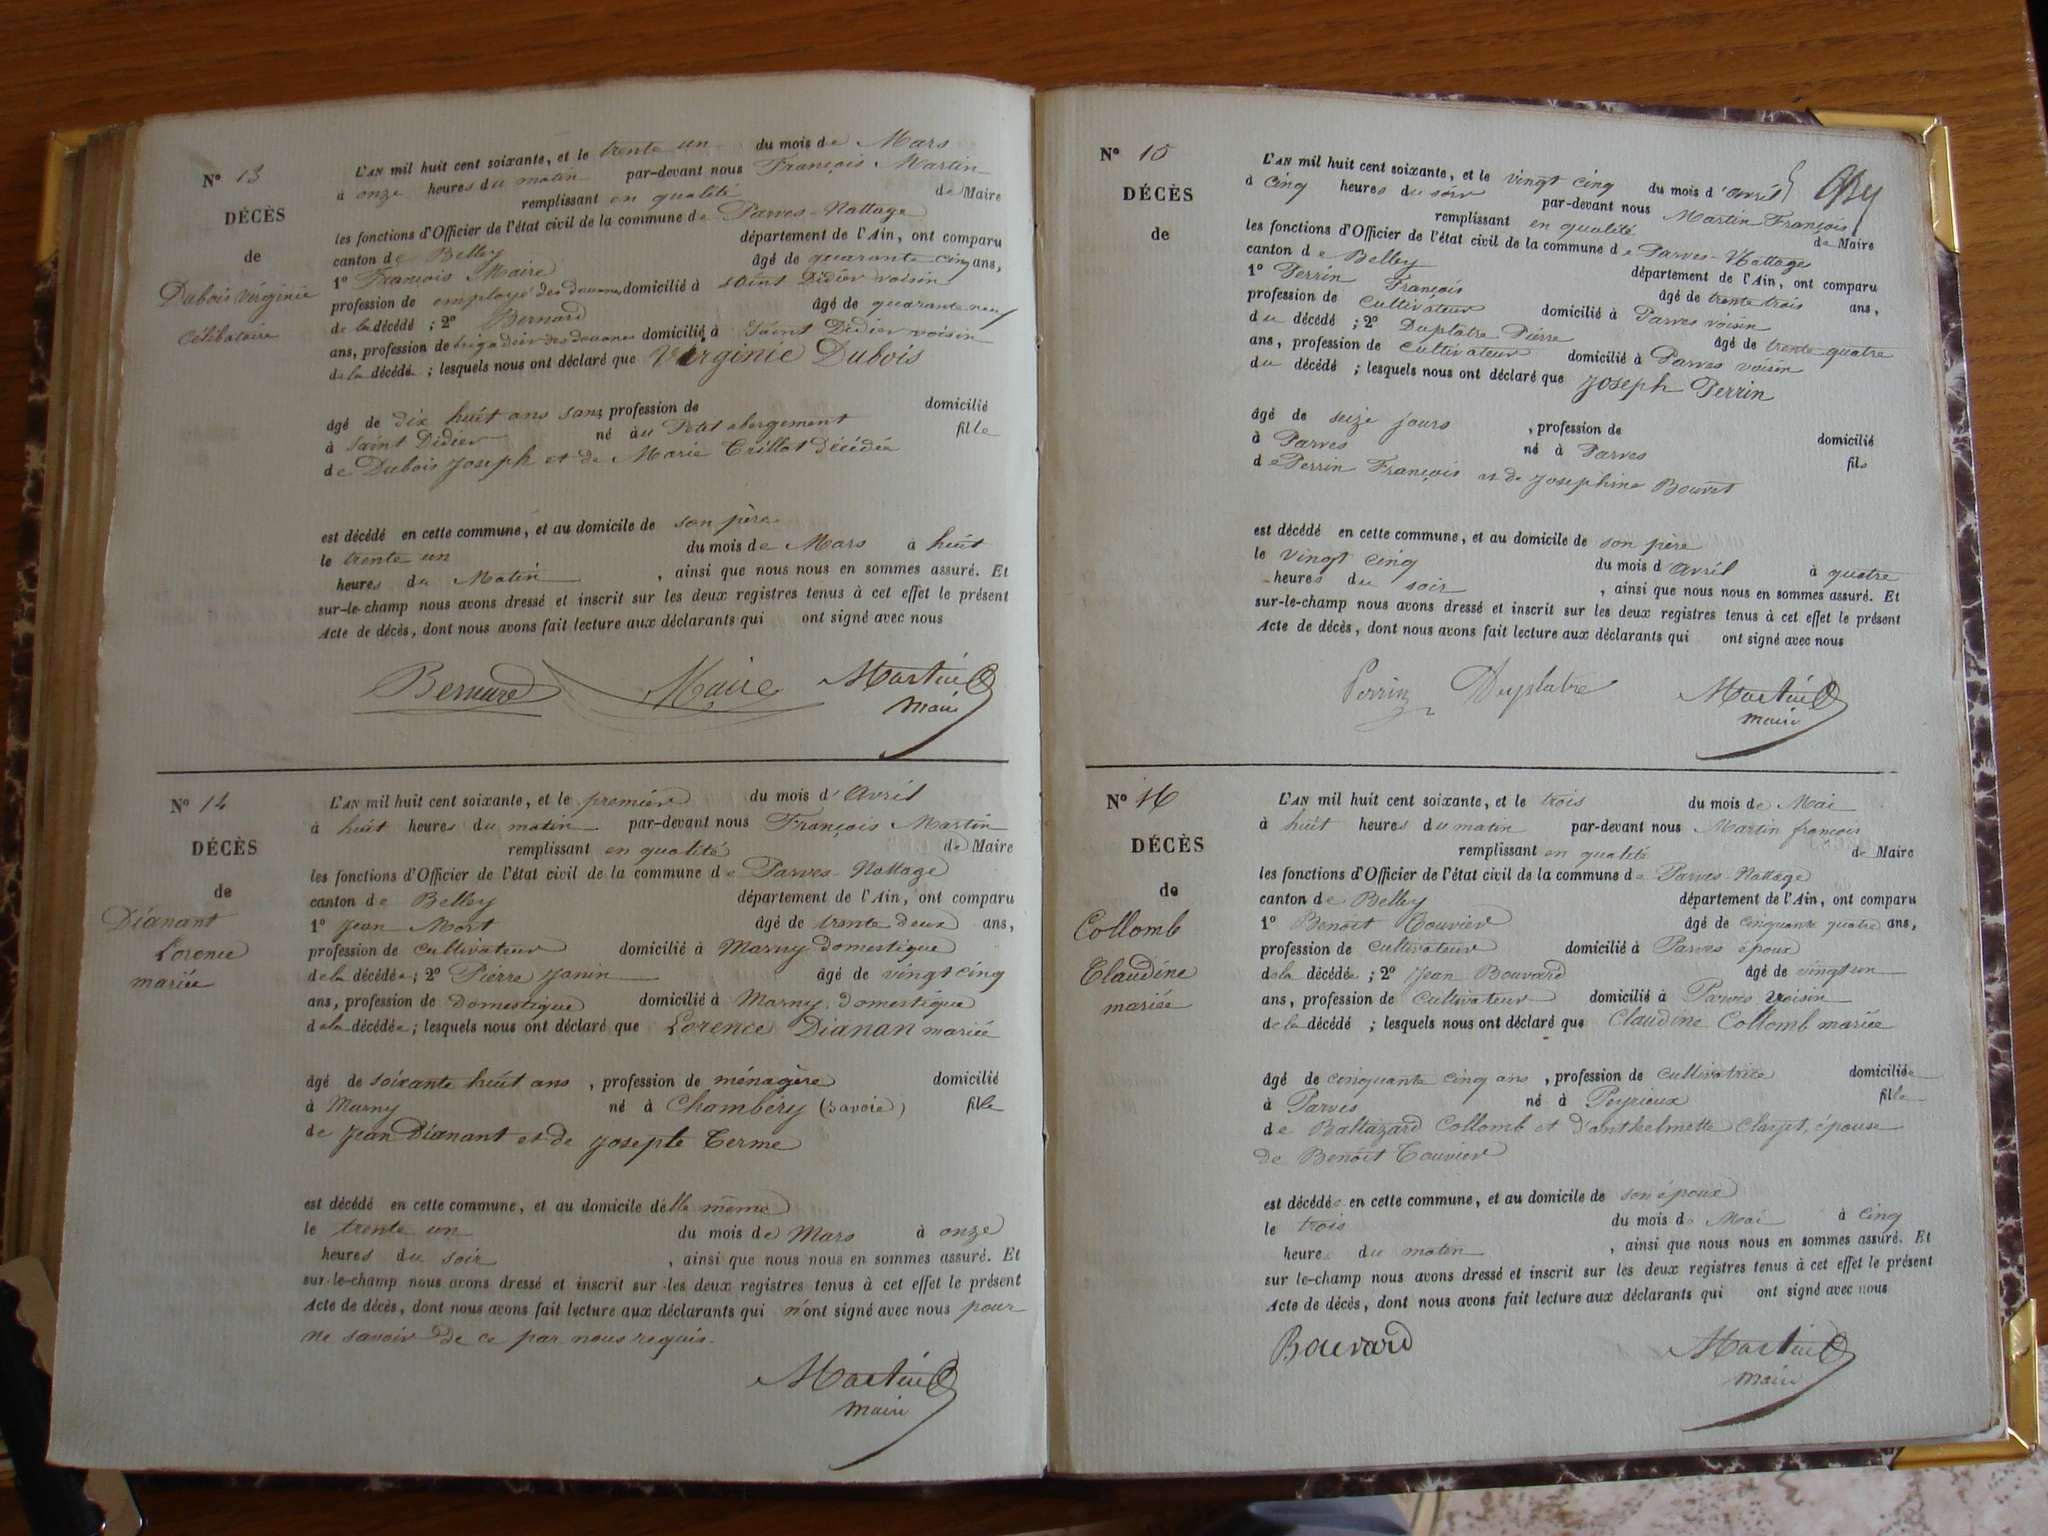 N° 13
DÉCÈS
de
Dubois Virginie
Célibataire
L'AN mil huit cent soixante, et le trente un du mois de Mars
à onze heures du matin par-devant nous François Martin
remplissant en qualité de Maire
les fonctions d'Officier de l'état civil de la commune de Parves-Nattage
canton de Belley département de l'Ain, ont comparu
1° François Maire âgé de quarante cinq ans,
profession de employé des douanes domicilié à saint Didier voisin
de la décédé ; 2° Bernard âgé de quarante neuf
ans, profession de brigadier des douanes domicilié à Saint Didier voisin
de la décédé ; lesquels nous ont déclaré que Virginie Dubois
âgé de dix huit ans sans profession de domicilié
à Saint Didier né au Petit abergement fille
de Dubois Joseph et de Marie Trillat décédée
est décédé en cette commune, et au domicile de son père
le trente un du mois de Mars à huit
heures du Matin , ainsi que nous nous en sommes assuré. Et
sur-le-champ nous avons dressé et inscrit sur les deux registres tenus à cet effet le présent
Acte de décès, dont nous avons fait lecture aux déclarants qui ont signé avec nous
Bernard Maire Martin
maire
N° 14
DÉCÈS
de
Dianant
Lorence
mariée
L'AN mil huit cent soixante, et le premier du mois d'Avril
à huit heures du matin par-devant nous François Martin
remplissant en qualité de Maire
les fonctions d'Officier de l'état civil de la commune de Parves-Nattage
canton de Belley département de l'Ain, ont comparu
1° Jean Mort âgé de trente deux ans,
profession de cultivateur domicilié à Marny domestique
de la décédée ; 2° Pierre Janin âgé de vingt cinq
ans, profession de domestique domicilié à Marny, domestique
de la décédée ; lesquels nous ont déclaré que Lorence Dianan mariée
âgé de soixante huit ans , profession de ménagère domicilié
à Marny né à Chambéry (savoie) fille
de Jean Dianant et de Josepte Terme
est décédé en cette commune, et au domicile delle même
le trente un du mois de Mars à onze
heures du soir , ainsi que nous nous en sommes assuré. Et
sur-le-champ nous avons dressé et inscrit sur les deux registres tenus à cet effet le présent
Acte de décès, dont nous avons fait lecture aux déclarants qui n'ont signé avec nous pour
ne savoir de ce par nous requis.
Martin
maire
N° 15
DÉCÈS
de
L'AN mil huit cent soixante, et le vingt cinq du mois d'avril
à cinq heures du soir par-devant nous Martin François
remplissant en qualité de Maire
les fonctions d'Officier de l'état civil de la commune de Parves-Nattages
canton de Belley département de l'Ain, ont comparu
1° Perrin François âgé de trente trois ans,
profession de cultivateur domicilié à Parves voisin
du décédé ; 2° Duplatre Pierre âgé de trente quatre
ans, profession de cultivateur domicilié à Parves voisin
du décédé ; lesquels nous ont déclaré que Joseph Perrin
âgé de seize jours , profession de domicilié
à Parves né à Parves fils
de Perrin François et de Josephine Bouvet
est décédé en cette commune, et au domicile de son père
le vingt cinq du mois d'avril à quatre
heures du soir , ainsi que nous nous en sommes assuré. Et
sur-le-champ nous avons dressé et inscrit sur les deux registres tenus à cet effet le présent
Acte de décès, dont nous avons fait lecture aux déclarants qui ont signé avec nous
Perrin Duplatre Martin
maire
N° 16
DÉCÈS
de
Collomb
Claudine
mariée
L'AN mil huit cent soixante, et le trois du mois de Mai
à huit heures du matin par-devant nous Martin françois
remplissant en qualité de Maire
les fonctions d'Officier de l'état civil de la commune de Parves-Nattage
canton de Belley département de l'Ain, ont comparu
1° Benoit Touvier âgé de cinquante quatre ans,
profession de cultivateur domicilié à Parves époux
de la décédée ; 2° Jean Bouvard âgé de vingt un
ans, profession de cultivateur domicilié à Parves voisin
de la décédé ; lesquels nous ont déclaré que Claudine Collomb mariée
âgé de cinquante cinq ans , profession de cultivatrice domiciliée
à Parves né à Peyrieux fille
de Baltazard Collomb et d'anthelmette Clarjet, épouse
de Benoit Touvier
est décédée en cette commune, et au domicile de son époux
le trois du mois de Mai à cinq
heures du matin , ainsi que nous nous en sommes assuré. Et
sur le-champ nous avons dressé et inscrit sur les deux registres tenus à cet effet le présent
Acte de décès, dont nous avons fait lecture aux déclarants qui ont signé avec nous
Bouvard Martin
maire